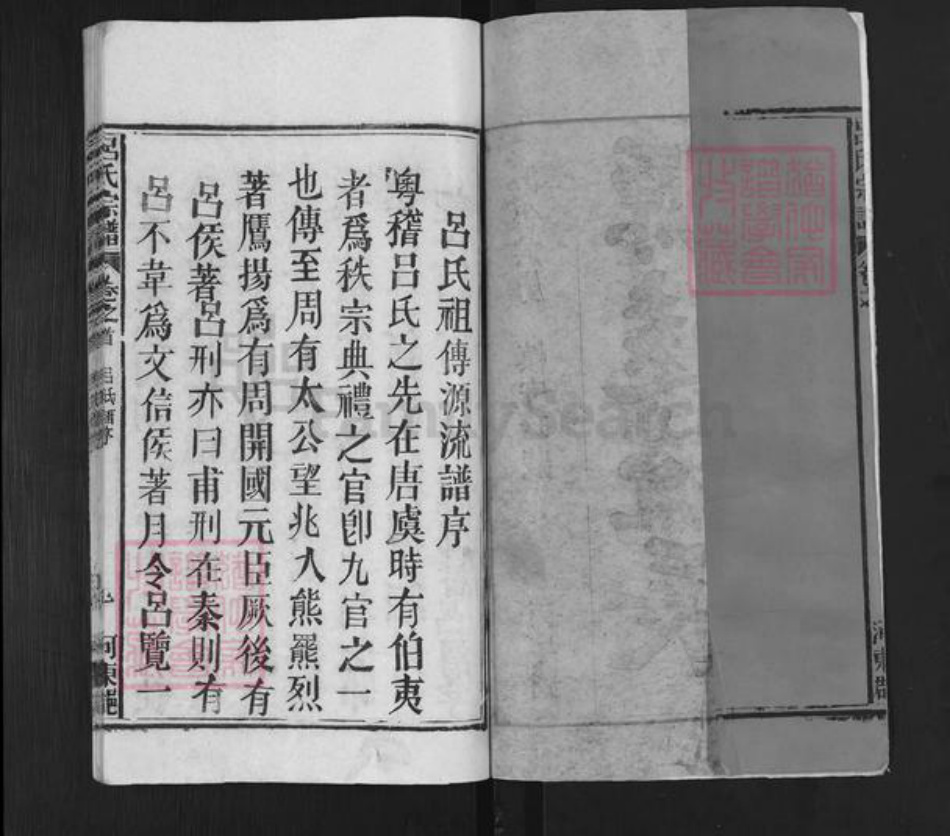 呂氏祖傳源流譜序
粵稽呂氏之先在唐虞時有伯夷
者爲秩宗典禮之官卽九官之一
也傳至周有太公望兆入熊羆烈
著鷹揚爲有周開國元臣厥後有
呂侯著呂刑亦曰甫刑在秦則有
呂不韋爲文信侯著月令呂覽一
呂氏宗譜 卷之首
河東
FamilySearch